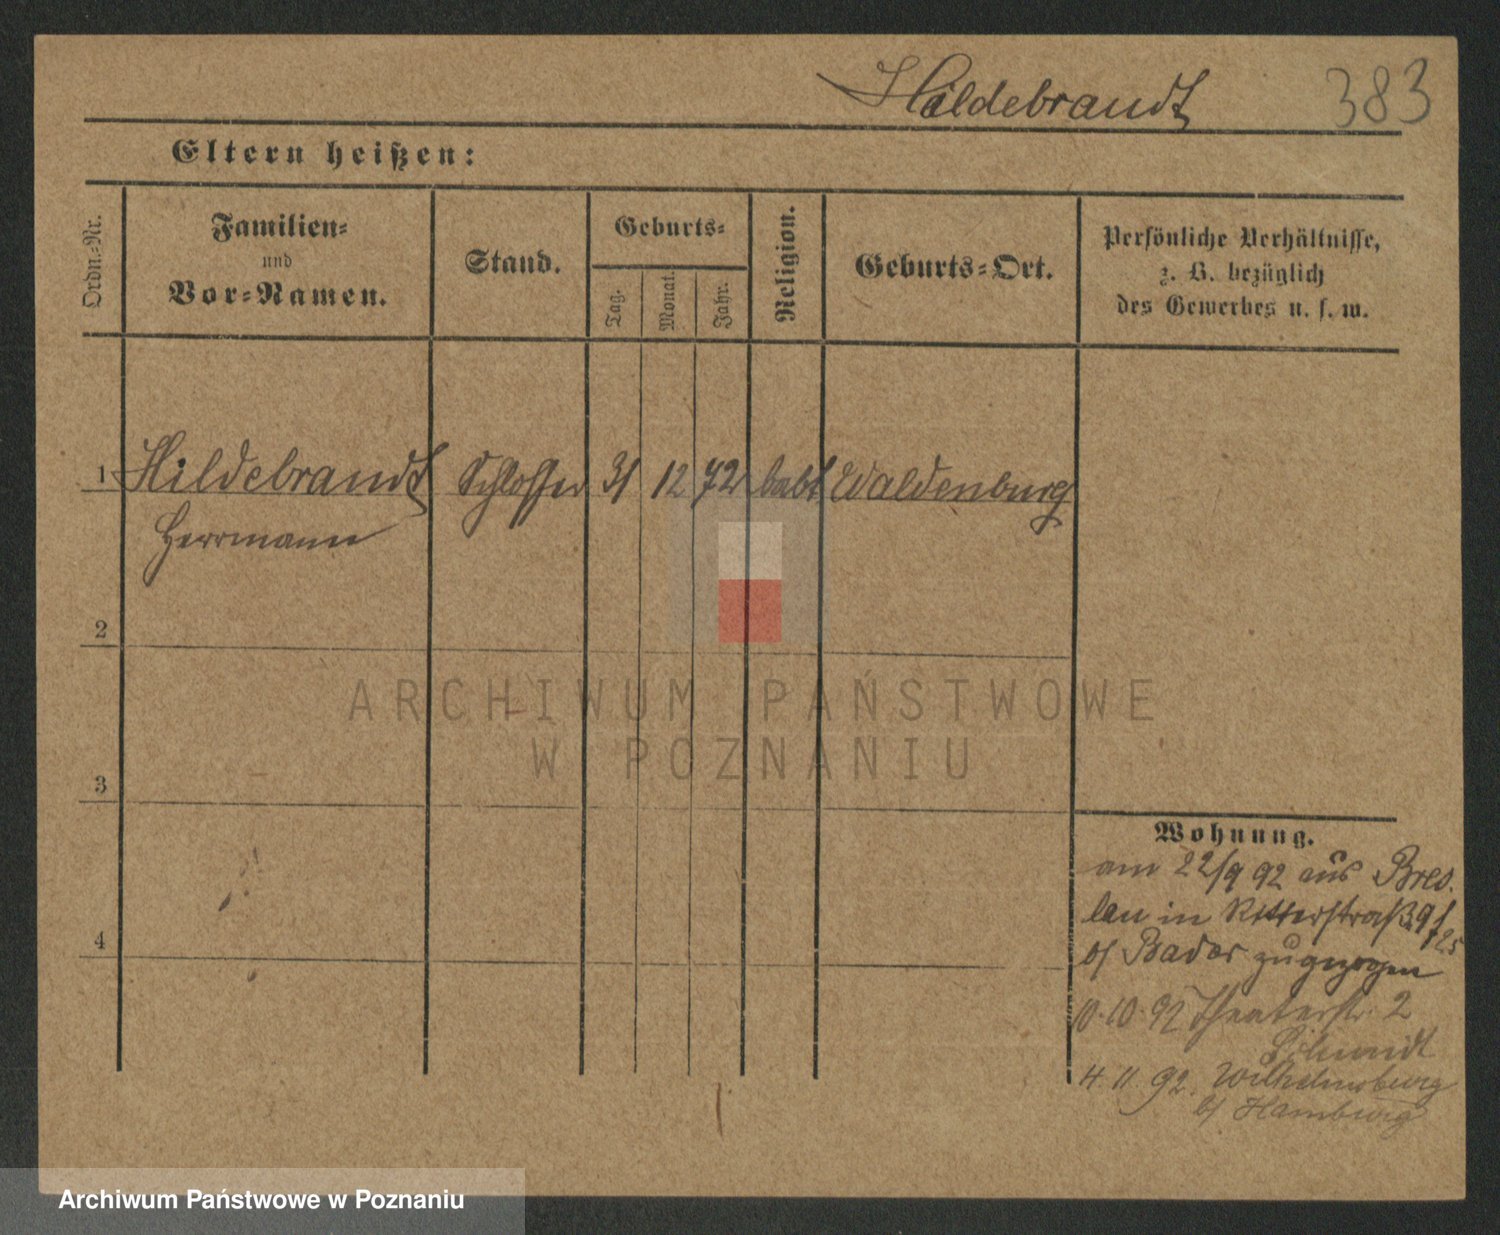 Hildebrandt 383
Eltern heißen:
Ordn.-Nr.
Familien-
und
Vor-Namen.
Stand.
Geburts-
Tag.
Monat.
Jahr.
Religion.
Geburts-Ort.
Persönliche Verhältnisse,
z. B. bezüglich
des Gewerbes u. s. w.
1 Hildebrandt Schlosser 31 12 72 Waldenburg
Herrmann
2
3
4
Wohnung.
am 22/9 92 aus Bres-
lau in Ritterstraß
b/ Bader zugezogen
10.10.92 Theaterstr. 2
Schmidt
4.11.92. Wilhelmsburg
b/ Hamburg
ARCHIWUM PAŃSTWOWE
W POZNANIU
Archiwum Państwowe w Poznaniu